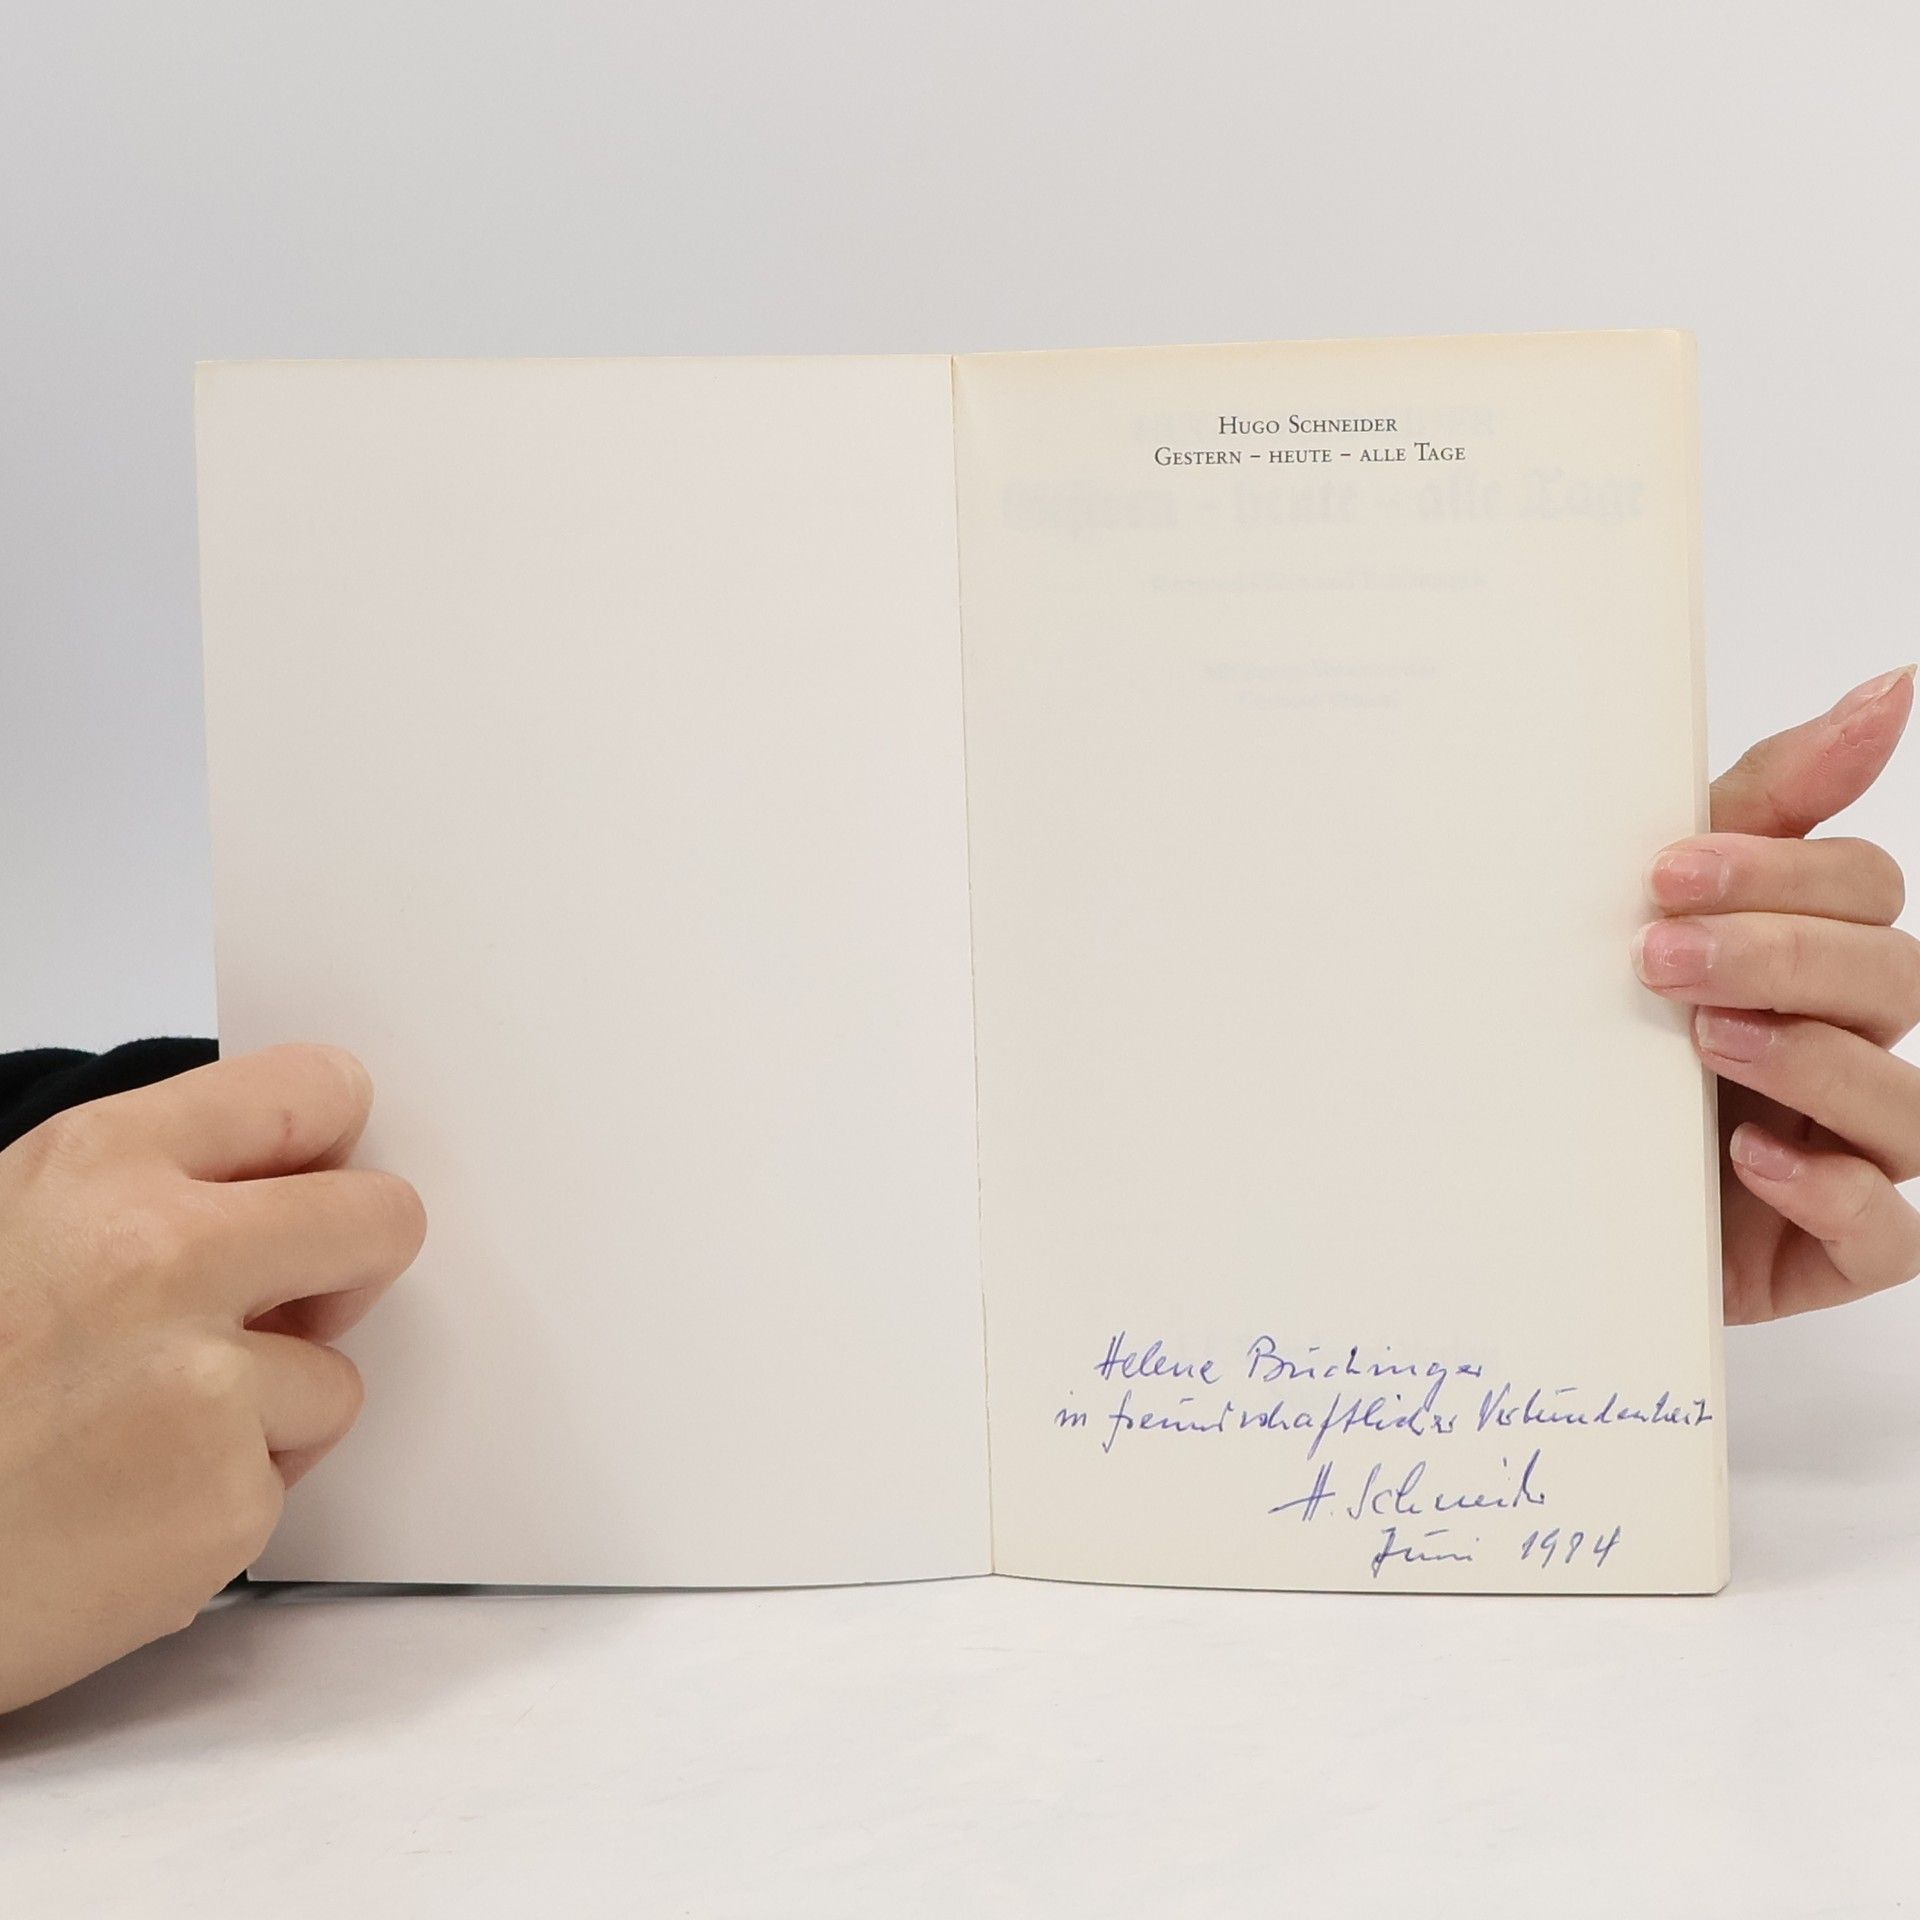 HUGO SCHNEIDER
GESTERN – HEUTE – ALLE TAGE
Gestern – heute – alle Tage
Helene Büchinger
in freundschaftlicher Verbundenheit
H. Schneider
Juni 1984